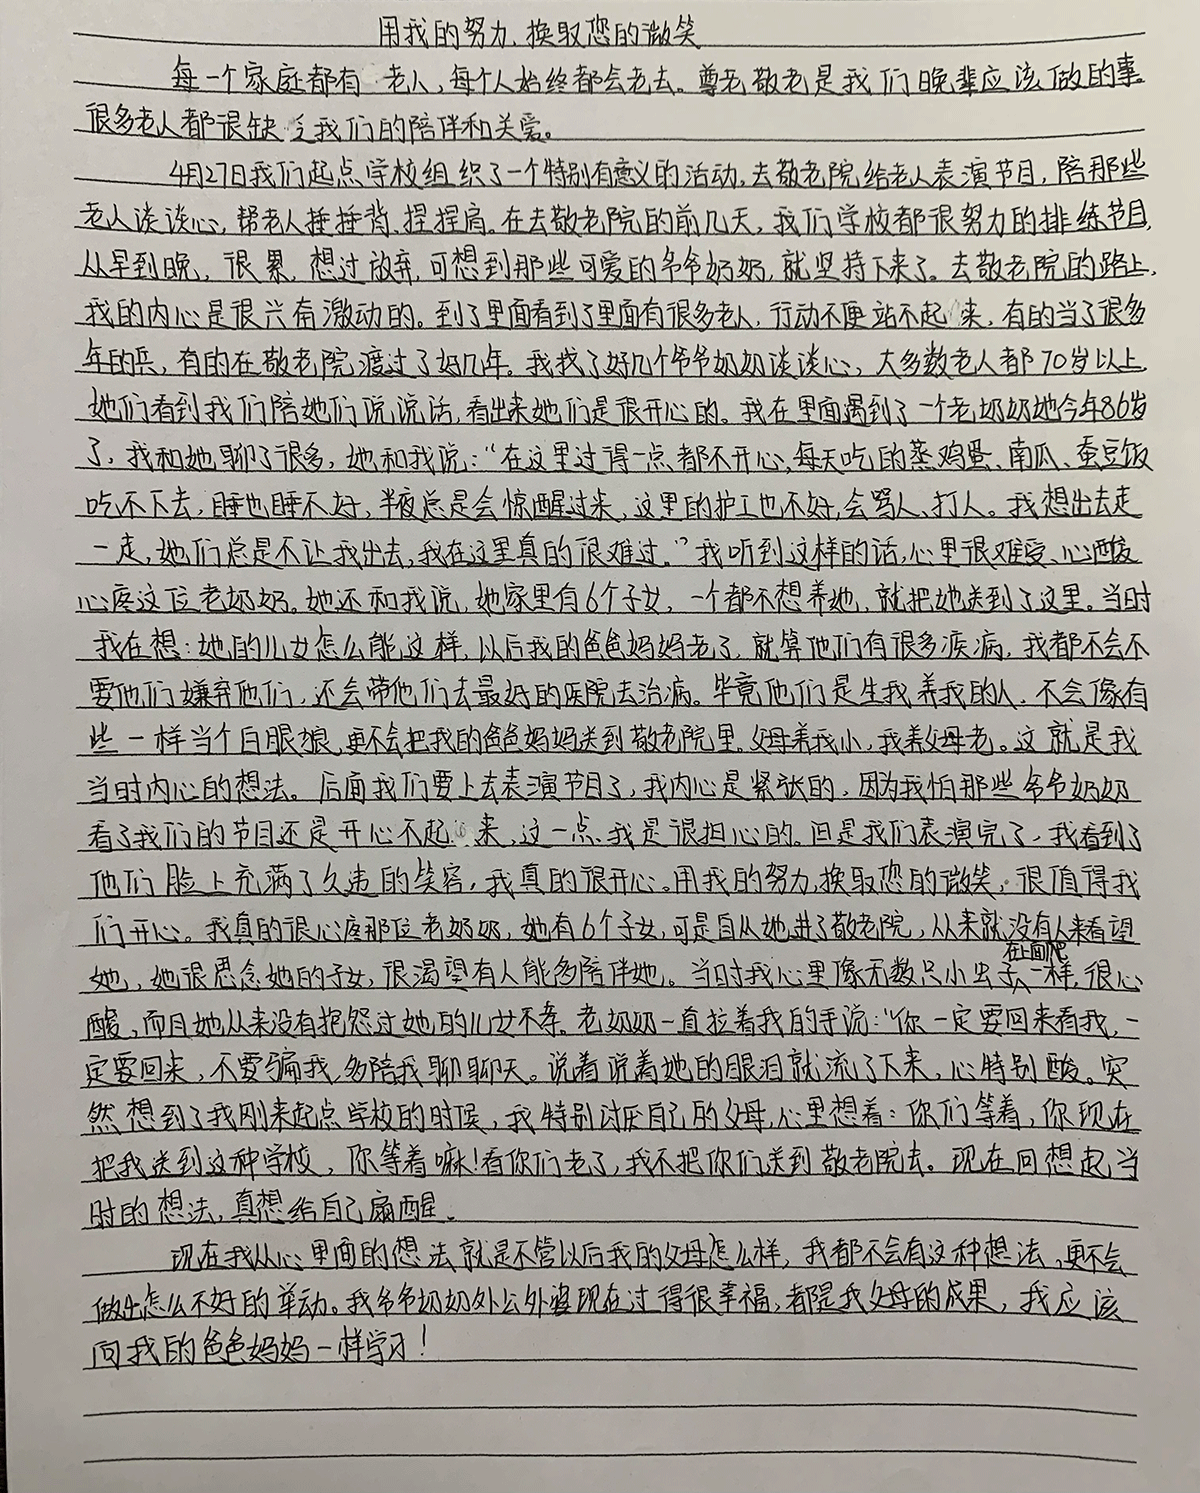 用我的努力,换取您的微笑
每一个家庭都有 老人,每个人始终都会老去。尊老敬老是我们晚辈应该做的事
很多老人都很缺乏我们的陪伴和关爱。
4月27日我们起点学校组织了一个特别有意义的活动,去敬老院给老人表演节目,陪那些
老人谈谈心,帮老人捶捶背、捏捏肩。在去敬老院的前几天,我们学校都很努力的排练节目,
从早到晚,很累,想过放弃,可想到那些可爱的爷爷奶奶,就坚持下来了。去敬老院的路上,
我的内心是很兴奋激动的。到了里面看到了里面有很多老人,行动不便站不起来,有的当了很多
年的兵,有的在敬老院渡过了好几年。我找了好几个爷爷奶奶谈谈心,大多数老人都70岁以上,
她们看到我们陪她们说说话,看出来她们是很开心的。我在里面遇到了一个老奶奶她今年86岁
了,我和她聊了很多,她和我说:“在这里过得一点都不开心,每天吃的蒸鸡蛋、南瓜、蚕豆饭
吃不下去,睡也睡不好,半夜总是会惊醒过来,这里的护工也不好,会骂人、打人。我想出去走
一走,她们总是不让我出去,我在这里真的很难过。”我听到这样的话,心里很难受、心酸
心疼这位老奶奶。她还和我说,她家里有6个子女,一个都不想养她,就把她送到了这里。当时
我在想:她的儿女怎么能这样,以后我的爸爸妈妈老了,就算他们有很多疾病,我都不会不
要他们嫌弃他们,还会带他们去最好的医院去治病。毕竟他们是生我养我的人,不会像有
些一样当个白眼狼,更不会把我的爸爸妈妈送到敬老院里。父母养我小,我养父母老。这就是我
当时内心的想法。后面我们要上去表演节目了,我内心是紧张的,因为我怕那些爷爷奶奶
看了我们的节目还是开心不起来,这一点我是很担心的。但是我们表演完了,我看到了
他们脸上充满了久违的笑容,我真的很开心。用我的努力,换取您的微笑,很值得我
们开心。我真的很心疼那位老奶奶,她有6个子女,可是自从她进了敬老院,从来就没有人来看望
她,她很思念她的子女,很渴望有人能多陪伴她。当时我心里像无数只小虫子在上面爬一样,很心
酸,而且她从来没有抱怨过她的儿女不孝。老奶奶一直拉着我的手说:“你一定要回来看我,一
定要回来,不要骗我,多陪我聊聊天。说着说着她的眼泪就流了下来,心特别酸。突
然想到了我刚来起点学校的时候,我特别讨厌自己的父母,心里想着:你们等着,你现在
把我送到这种学校,你等着嘛!看你们老了,我不把你们送到敬老院去。现在回想起当
时的想法,真想给自己扇醒。
现在我从心里面的想法就是不管以后我的父母怎么样,我都不会有这种想法,更不会
做出怎么不好的举动。我爷爷奶奶外公外婆现在过得很幸福,都是我父母的成果,我应该
向我的爸爸妈妈一样学习!